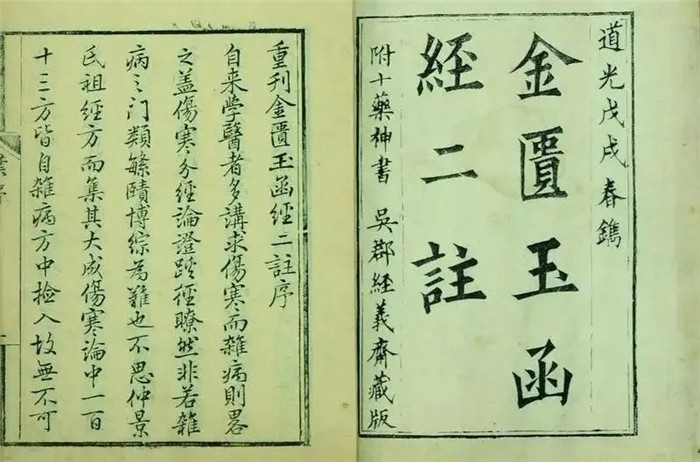 道光戊戌春鐫
金匱玉函
經二註
附十藥神書 吳郡經義齋藏版
重刊金匱玉函經二註序
自来学醫者多講求傷寒而雜病則畧
之盖傷寒分經論證蹊徑瞭然非若雜
病之门類繁賾博綜為難也不思仲景
氏祖經方而集其大成傷寒論中一百
十三方皆自雜病方中捡入故無不可